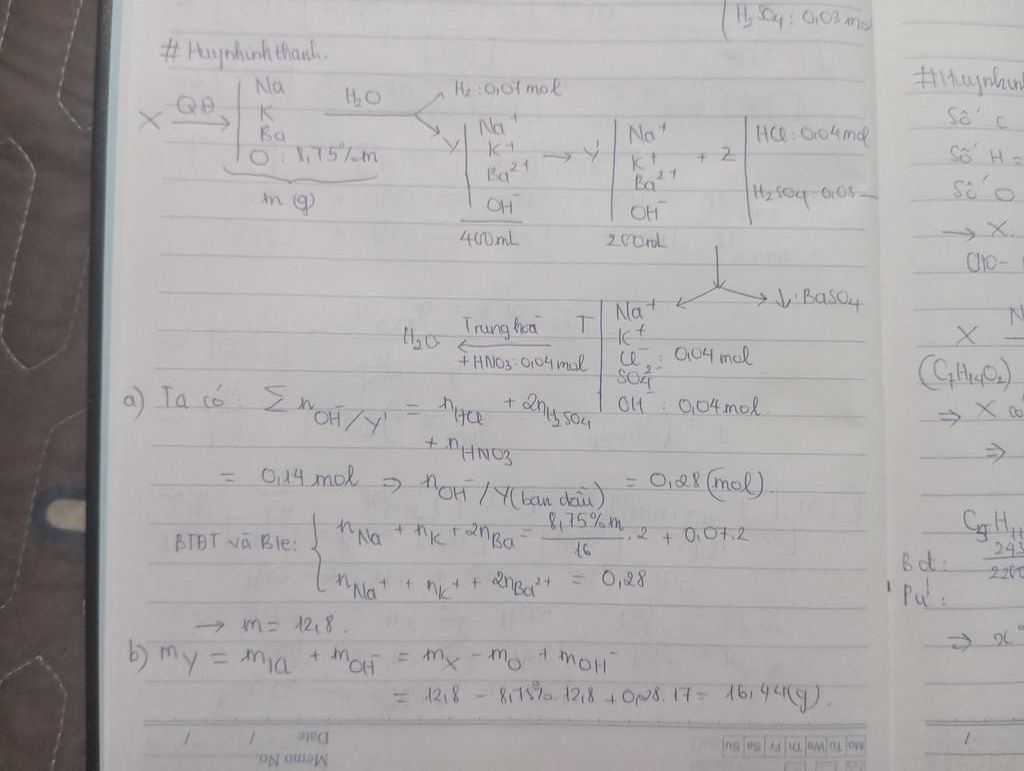 H₂SO₄: 0,03 mol
# Huynhinhthanh.
X QĐ→ Na
K
Ba
O : 8,75%m
m (g)
H₂O
H₂: 0,07 mol
Y Na⁺
K⁺
Ba²⁺
OH⁻
400ml
→ Y' Na⁺
K⁺
Ba²⁺
OH⁻
200ml
+ Z HCl: 0,04mol
H₂SO₄ 0,03
↓: BaSO₄
T Na⁺
K⁺
Cl⁻ : 0,04 mol
SO₄²⁻
OH⁻ : 0,04 mol.
H₂O ← Trung hoà
+ HNO₃: 0,04 mol
a) Ta có: Σ n OH⁻/Y' = n HCl + 2n H₂SO₄
+ n HNO₃
= 0,14 mol ⇒ n OH⁻/Y (ban đầu) = 0,28 (mol)
BTĐT và Bte: { n Na + n K + 2n Ba = 8,75%m / 16 . 2 + 0,07.2
n Na⁺ + n K⁺ + 2n Ba²⁺ = 0,28
→ m = 12,8.
b) m Y = m KL + m OH⁻ = m X - m O + m OH⁻
= 12,8 - 8,75%. 12,8 + 0,28. 17 = 16,44(g).
Memo No.
Date / /
Mo Tu We Th Fr Sa Su
Số C
Số H =
Số O
→ X.
CHO-
X
(C₇H₁₄O₂)
⇒ X có
⇒
Bđ:
Pư:
⇒
/